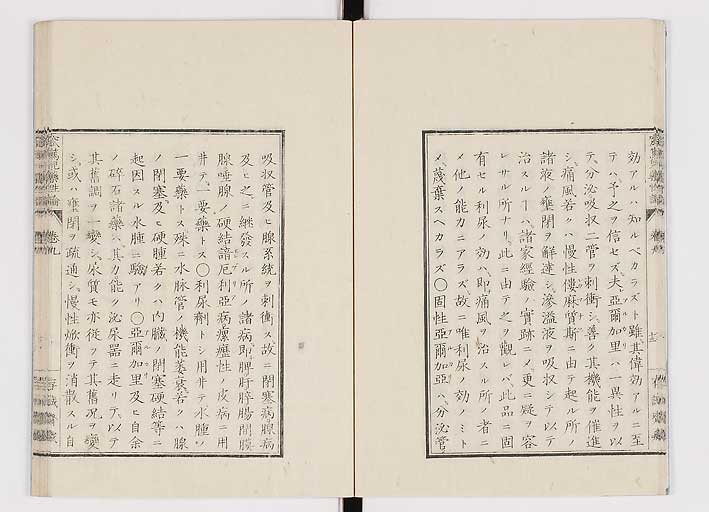 効アルハ知ルベカラズト雖其偉効アルニ至
テハ予之ヲ信セズ夫亞爾加里ハ一異性ヲ以
テ分泌吸収二管ヲ刺衝シ善ク其機能ヲ催進
シ痛風若クハ慢性僂麻質斯ニ由テ起ル所ノ
諸液ノ壅閉ヲ解達シ滲溢液ヲ吸収シテ以テ
治スルヿハ諸家經驗ノ實跡ニノ更ニ疑ヲ容
レサル所ナリ此ニ由テ之ヲ觀レバ此品ニ固
有セル利尿ノ効ハ即痛風ヲ治スル所ノ者ニ
ノ他ノ能力ニアラズ故ニ唯利尿ノ効ノミト
ノ蔑棄スヘカラズ〇固性亞爾加亞ハ分泌管
吸収管及ヒ腺系統ヲ刺衝ス故ニ閉塞病腺病
及ヒ之ニ繼發スル所ノ諸病即脾肝膵腸間膜
腺唾腺ノ硬結諳厄利亞病瘰癧性ノ皮病ニ用
井テ一要藥トス〇利尿劑トシ用井テ水腫ノ
一要藥トス殊ニ水脉管ノ機能萎衰若クハ腺
ノ閉塞及ヒ硬腫若クハ内臓ノ閉塞硬結等ニ
起因スル水腫ニ驗アリ〇亞爾加里及ヒ自余
ノ碎石諸藥ハ其力能ク泌尿器ニ走リテ以テ
其舊調ヲ一變シ尿質モ亦從フテ其舊況ヲ變
シ或ハ壅閉ヲ疏通シ慢性焮衝ヲ消散スル自
卷九